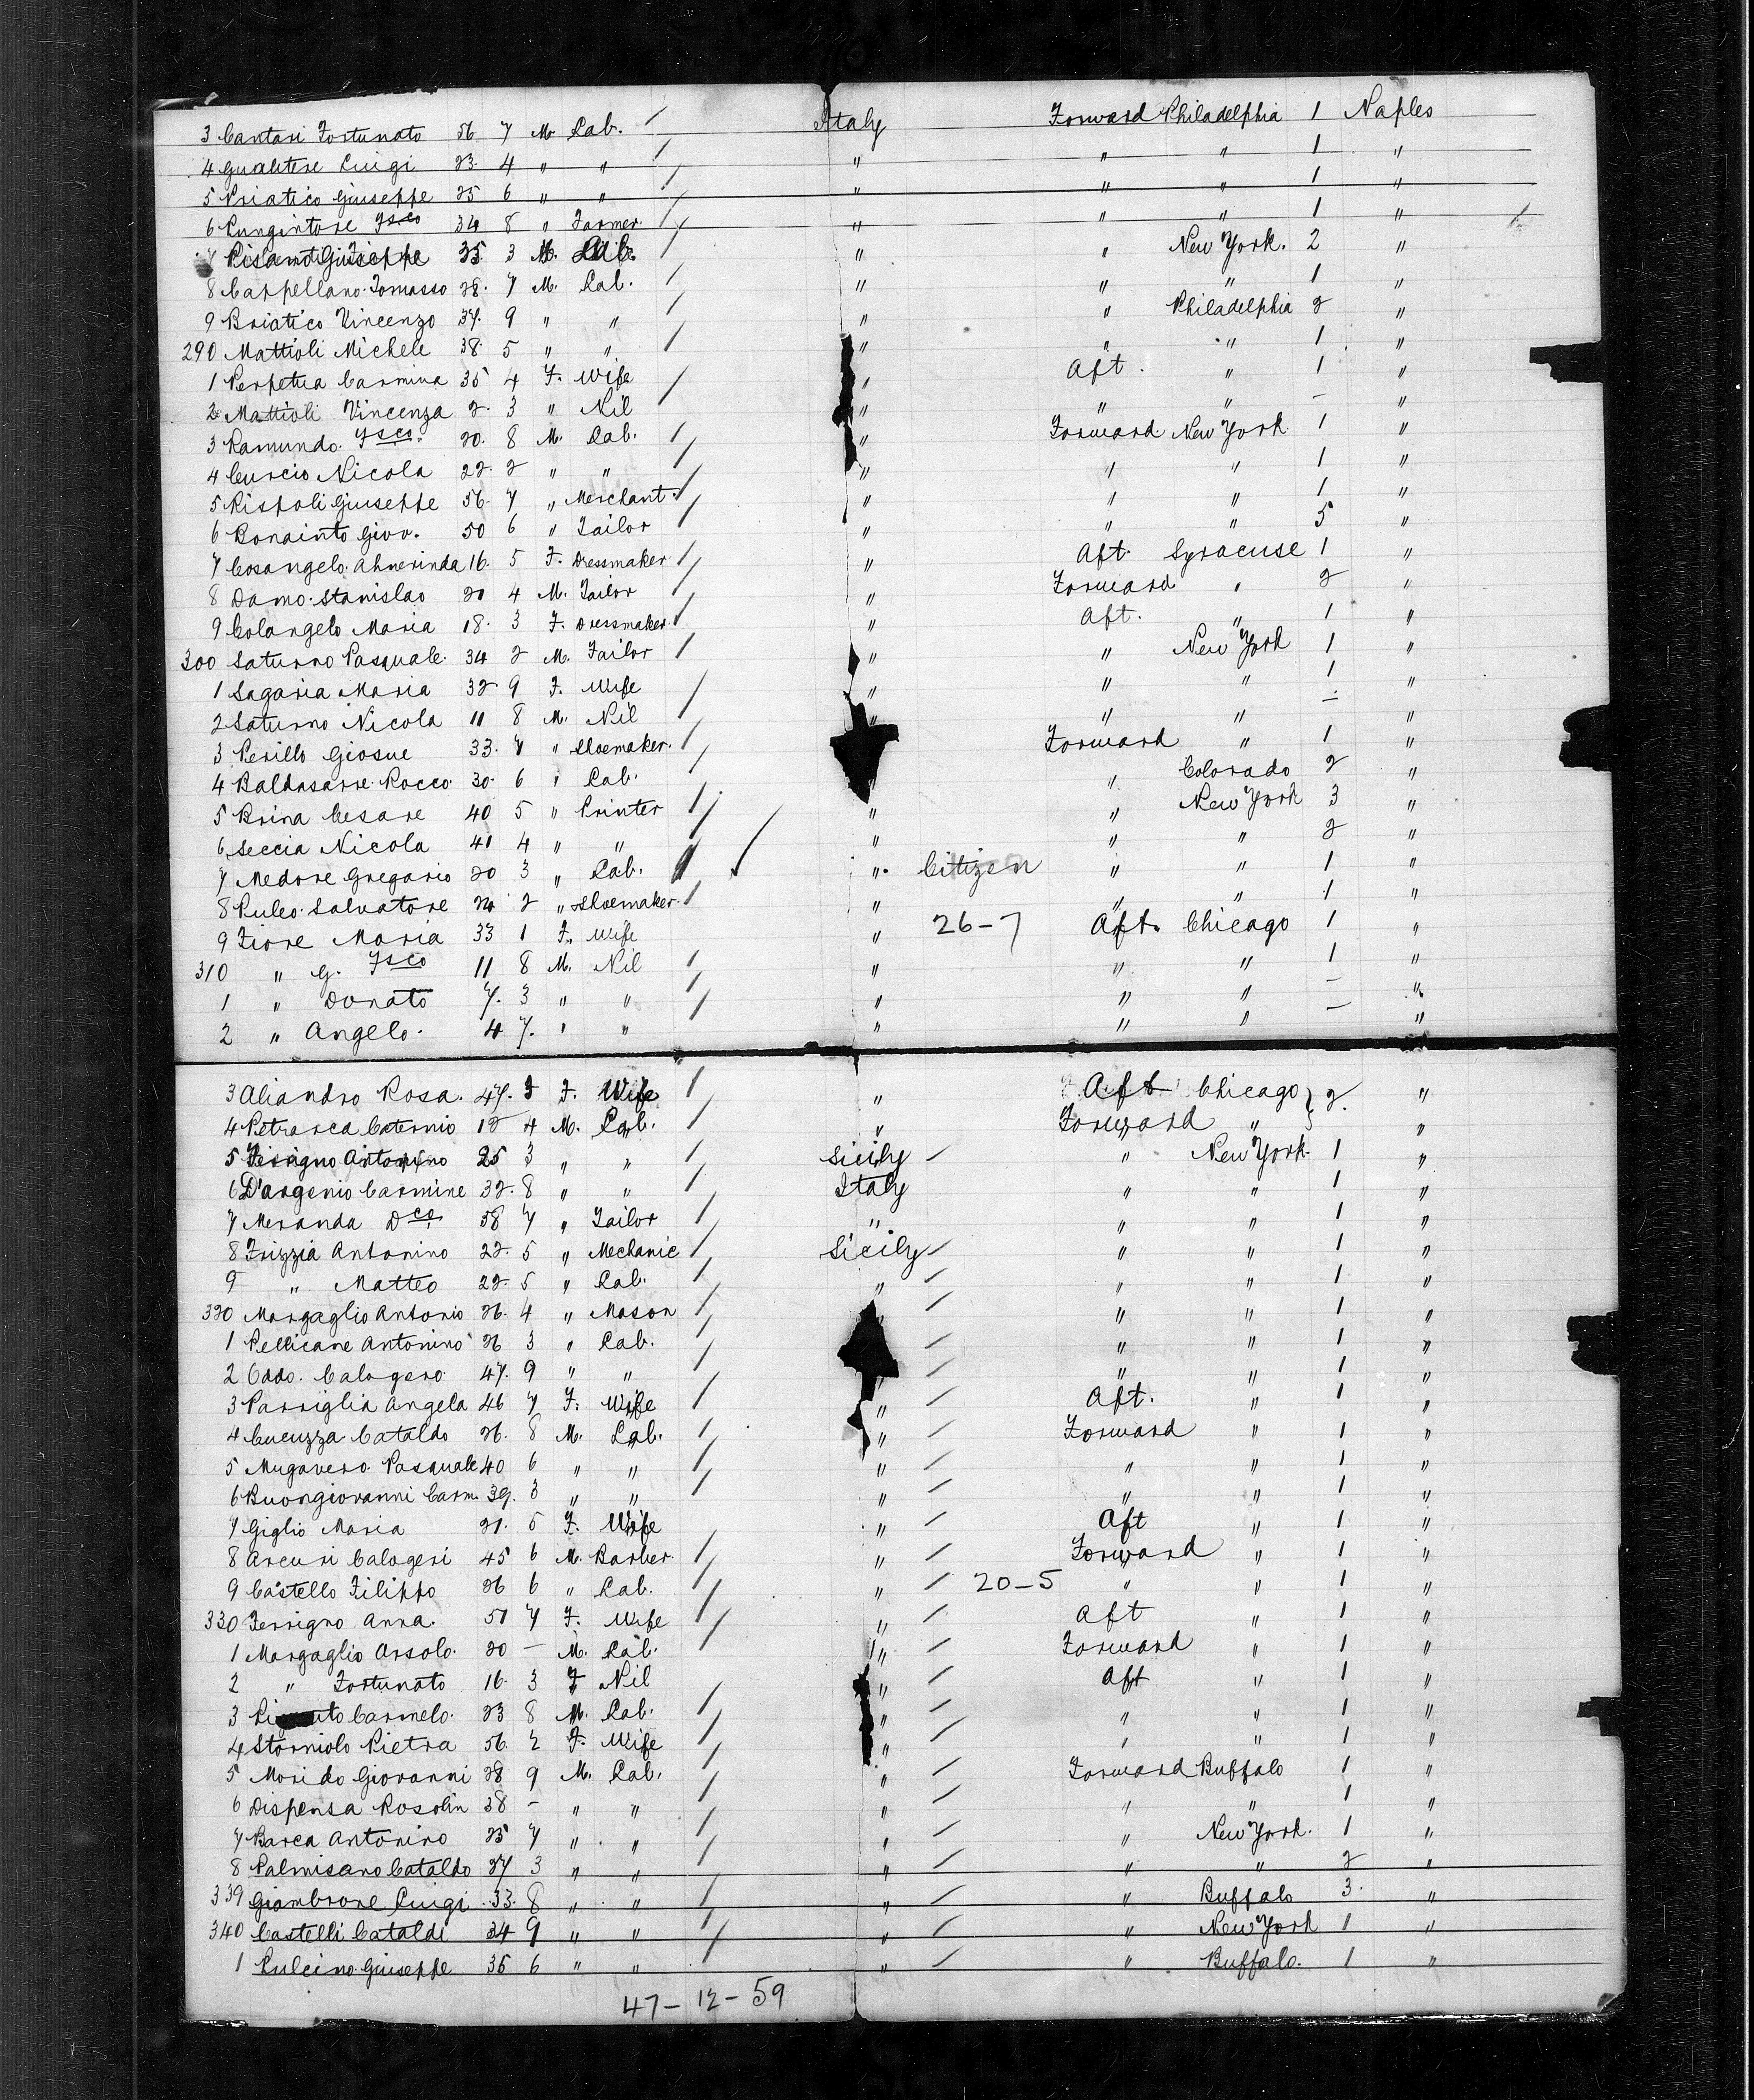 3 Cantasi Fortunato 56 7 M. Lab. / Italy Forward Philadelphia 1 Naples
4 Gualtere Luigi 23. 4 " " / " " " 1 "
5 Priatico Giuseppe 25 6 " " / " " " 1 "
6 Pungintore Fsco 34 8 " Farmer / " " " 1 "
7 Pisano Giuseppe 35. 3 M. Lab. / " " New York. 2 "
8 Cappellano Tomasso 28. 7 M. Lab. / " " " 1 "
9 Briatico Vincenzo 37. 9 " " / " " Philadelphia 2 "
290 Mattioli Michele 38. 5 " " / " " " 1 "
1 Perpetua Carmina 35 4 F. Wife " Aft. " 1 "
2 Mattioli Vincenza 2. 3 " Nil / " " " - "
3 Ramundo Fsco. 20. 8 M. Lab. / " Forward New York 1 "
4 Curcio Nicola 22. 2 " " / " " " 1 "
5 Rispoli Giuseppe 56. 7 " Merchant / " " " 1 "
6 Bonainto Giov. 50 6 " Tailor / " " " 5 "
7 Cosangelo Almerinda 16. 5 F. Dressmaker / " Aft. Syracuse 1 "
8 Damo Stanislao 20 4 M. Tailor / " Forward " 2 "
9 Colangelo Maria 18. 3 F. Dressmaker / " Aft. " 1 "
300 Saturno Pasquale 34 2 M. Tailor / " " New York 1 "
1 Sagaria Maria 32 9 F. Wife " " " 1 "
2 Saturno Nicola 11 8 M. Nil / " " " - "
3 Perillo Giosue 33. 7 " Shoemaker. / Forward " 1 "
4 Baldasarre Rocco 30. 6 " Lab. / " " Colorado 2 "
5 Brina Cesare 40 5 " Printer / " " New York 3 "
6 Seccia Nicola 41 4 " " / " " " 2 "
7 Medore Gregario 20 3 " Lab. / " Citizen " " 1 "
8 Puleo Salvatore 24 2 " Shoemaker / " " " 1 "
9 Fiore Maria 33 1 F. Wife " 26-7 Aft. Chicago 1 "
310 " G. Fsco 11 8 M. Nil / " " " 1 "
1 " Donato 7. 3 " " / " " " - "
2 " Angelo. 4 7. " " / " " " - "
3 Aliandro Rosa. 47. 3 F. Wife / " Aft Chicago } 2. "
4 Petrarca Caternio 12 4 M. Lab. / " Forward " "
5 Ferrigno Antonino 25 3 " " / Sicily / " New York 1 "
6 D'argenio Carmine 32. 8 " " / Italy " " 1 "
7 Meranda Dco. 38 7 " Tailor / " " " 1 "
8 Frizzia Antonino 22. 5 " Mechanic / Sicily / " " 1 "
9 " Matteo 22. 5 " Lab. / " / " " 1 "
320 Margaglio Antonio 26. 4 " Mason / " / " " 1 "
1 Pellicane Antonino 26 3 " Lab. / / " " 1 "
2 Oddo. Calogero. 47. 9 " " / " / " " 1 "
3 Parriglia Angela 46 7 F. Wife / " / Aft. " 1 "
4 Cucuzza Cataldo 26. 8 M. Lab. / " / Forward " 1 "
5 Mugavero Pasquale 40 6 " " / " / " " 1 "
6 Buongiovanni Carm. 39. 3 " " / " / " " 1 "
7 Giglio Maria 21. 5 F. Wife " / Aft " 1 "
8 Arcuri Calogeri 45 6 M. Barber. / " / Forward " 1 "
9 Castello Filippo 26 6 " Lab. / " / 20-5 " " 1 "
330 Ferrigno Anna. 51 7 F. Wife / " / Aft " 1 "
1 Margaglio Arsolo. 20 - M. Lab. / " / Forward " 1 "
2 " Fortunato 16. 3 F Nil " / Aft " 1 "
3 Carmelo. 23 8 M. Lab. / " / " " 1 "
4 Storniolo Pietra 56. 2 F. Wife / " / " " 1 "
5 Morido Giovanni 28 9 M. Lab. / " / Forward Buffalo 1 "
6 Dispensa Rosolin 38 - " " / " / " " 1 "
7 Barca Antonino 25 7 " " / " / " New York. 1 "
8 Palmisano Cataldo 27 3 " " / " / " " 2 "
339 Giambrone Luigi. 33. 8 " " / " / " Buffalo 3. "
340 Castelli Cataldi 24 9 " " / " / " New York 1 "
1 Pulcino Giuseppe 35 6 " " / " / " Buffalo. 1 "
47-12-59